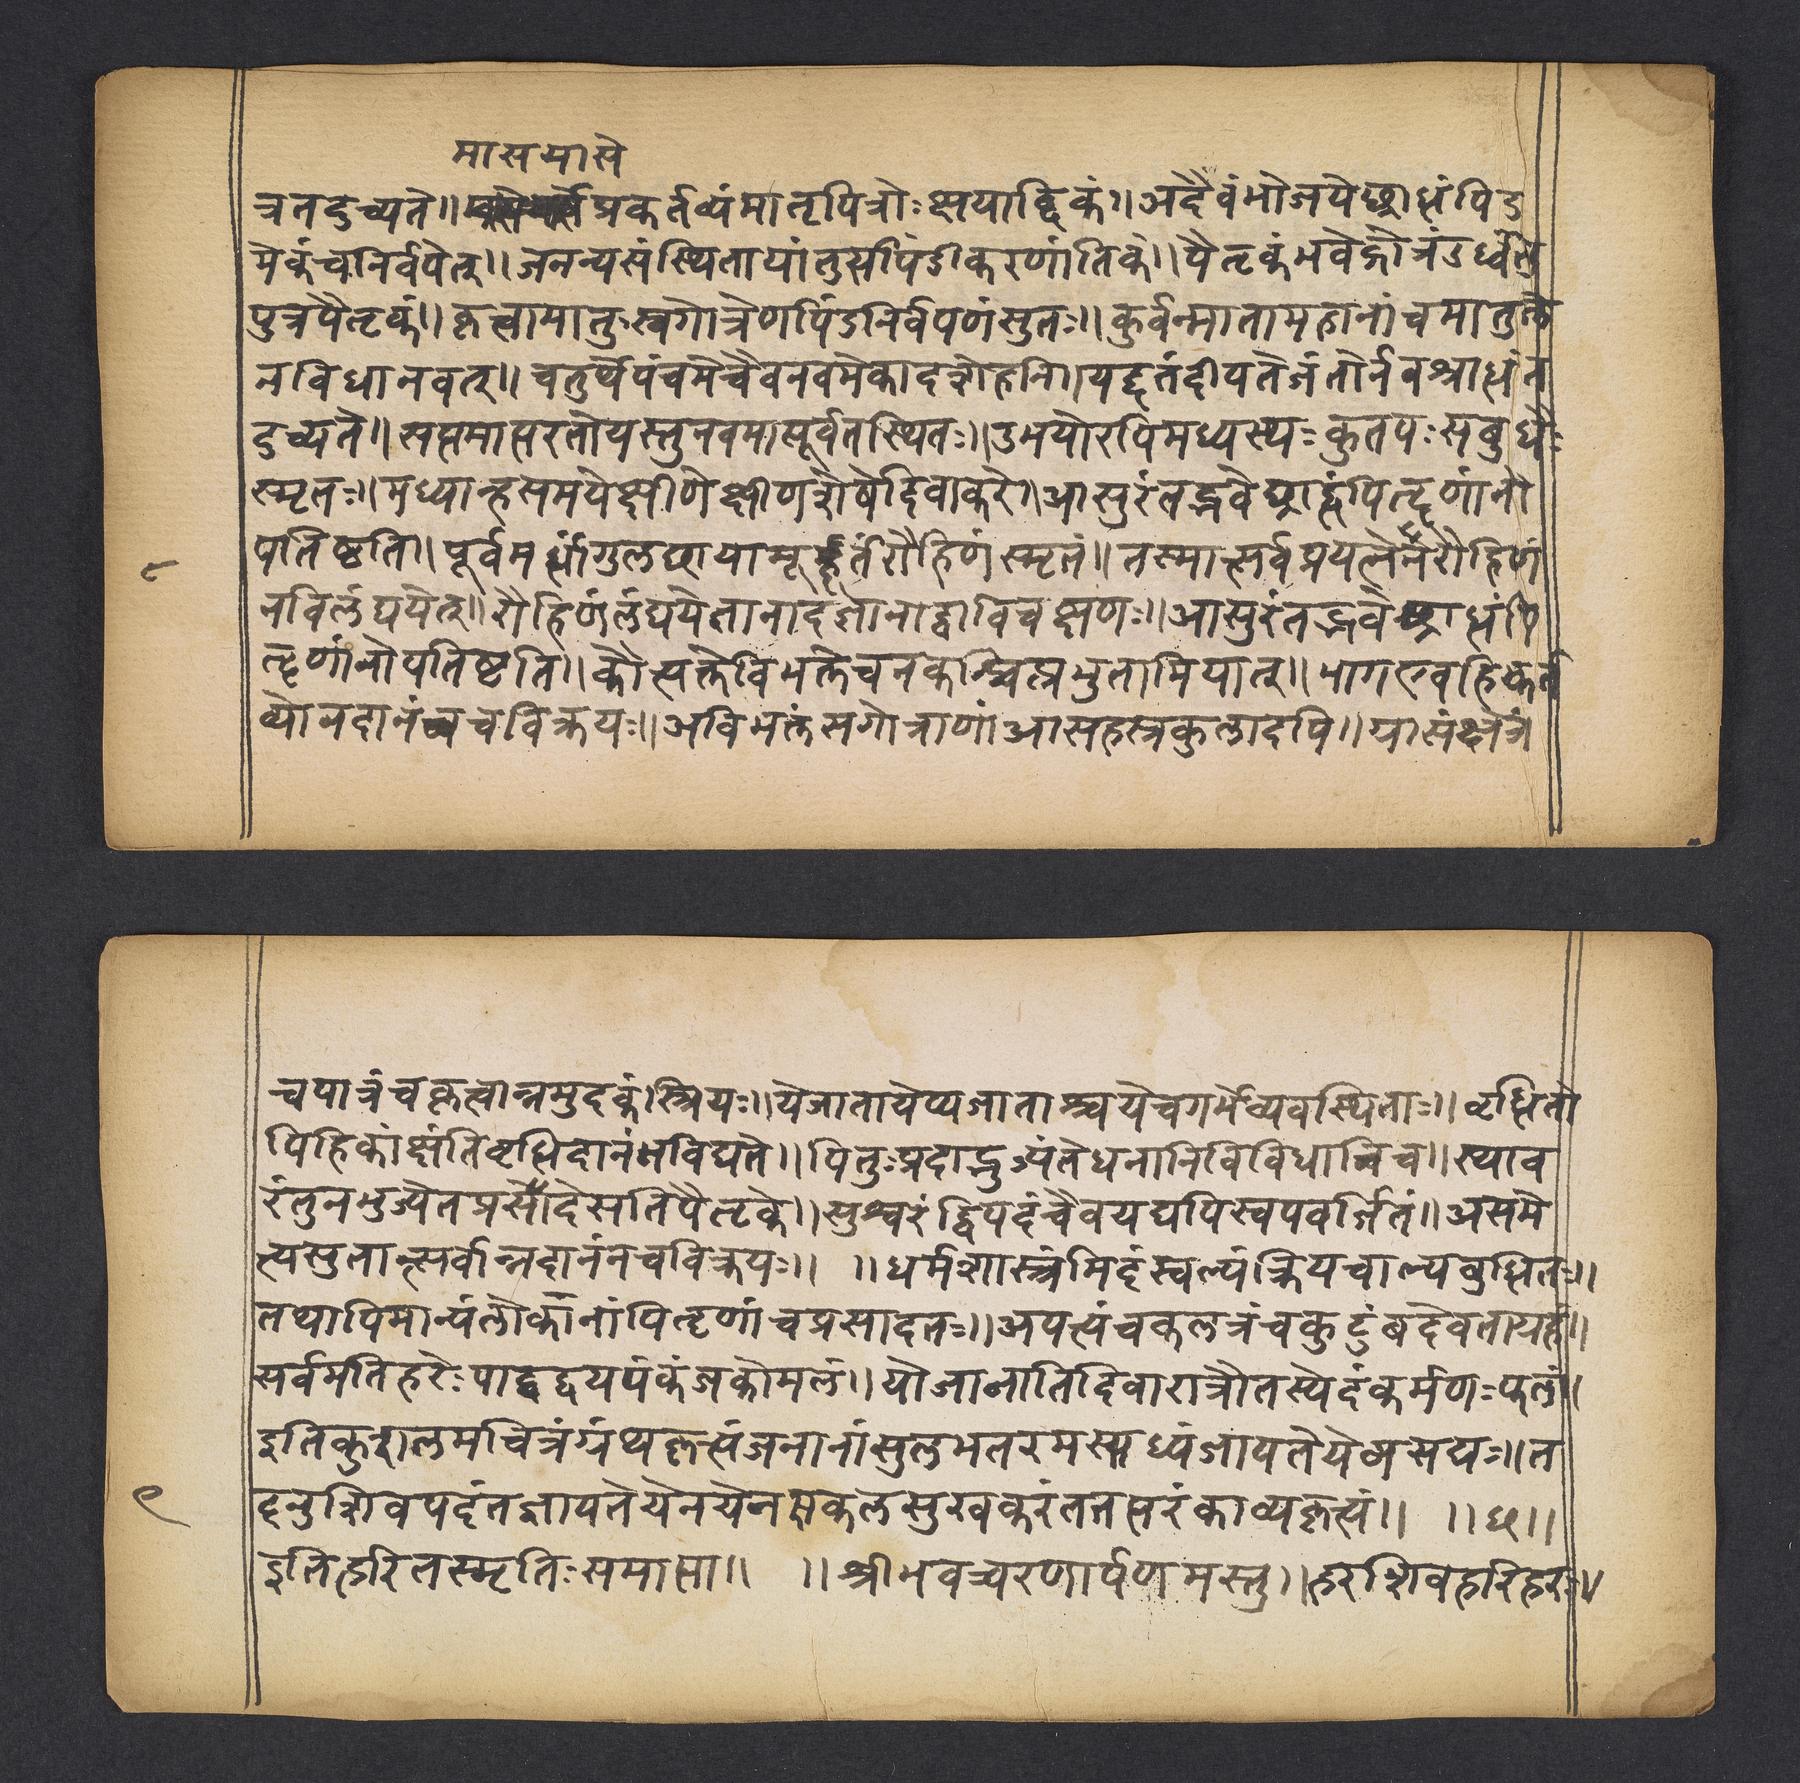 मासमासे
त्रतदुच्यते॥ प्रकर्तव्यंमातृपित्रोःक्षयाब्दिकं॥अदैवंभोजयेछ्राद्धंपिंड
मेकंचनिर्वपेत्॥जनन्यसंस्थितायांतुसपिंडीकरणांतिकं॥पैतृकंभवेद्गोत्रंउर्ध्वंतु
पुत्रपैतृकं॥कृत्वामातुःस्वगोत्रेणपिंडनिर्वपणंसुतः॥कुर्वन्मातामहानांचमातुले
नविधानवत्॥चतुर्थेपंचमेचैवनवमेकादशेहनि॥यद्दत्तंदीयतेजंतोर्नवश्राद्धंत
दुच्यते॥सप्तमात्परतोयस्तुनवमात्पूर्वतस्थितः॥उभयोरपिमध्यस्थःकुतपःसबुधैः
स्मृतः॥मध्यान्हसमयेक्षीणेक्षीणशेषेदिवाकरे॥आसुरंतद्भवेछ्राद्धंपितृणांनो
पतिष्ठति॥पूर्वमर्धांगुलछायामूहूर्तंरौहिणंस्मृतं॥तस्मात्सर्वप्रयत्नेनरौहिणं
८
नविलंघयेत्॥रौहिणंलंघयेतानादज्ञानाद्वाविचक्षणः॥आसुरंतद्भवेछ्राद्धंपि
तृणांनोपतिष्ठति॥ विभक्तेचनकश्चित्प्रभुतामियात्॥भागएवहिकर्त
व्योनदानंनचविक्रयः॥अविभक्तंसगोत्राणांआसहस्त्रकुलादपि॥
चपात्रंचकृतवान्नमुदकंस्त्रियः॥येजातायेप्यजाताश्चयेचगर्भेव्यवस्थिताः॥वृत्तिंते
पिहिकांक्षंतिवृत्तिदानंनविद्यते॥पितुःप्रदाद्भुज्यंतेधनानिविविधानिच॥स्थाव
रंतुनभुज्येतप्रसादेसतिपैतृके॥ द्विपदंचैवयद्यपिस्वपवर्जितं॥असमे
त्यसुतान्सर्वान्नदानंनचविक्रयः॥ ॥धर्मशास्त्रंमिदंस्वल्पंक्रियचाल्पबुद्धितः॥
तथापिमान्यंलोकानांपितृणांचप्रसादतः॥अपत्यंचकलत्रंचकुटुंबदैवतायहं॥
सर्वमतिहरेः पंकजकोमलं॥योजानातिदिवारात्रौतस्येदंकर्मणःफलं॥
इतिकुशलमचित्रंग्रंथकृत्यंजनानांसुलभतरमसाध्यंज्ञापते ॥त
९
दनुशिवपदंतज्ञायतेयेनयेनसकलसुखकरंतत्तत्परंकाव्यकृत्यं॥ ॥छ॥
इतिहारितस्मृतिःसमाप्ता॥ ॥श्रीभवच्चरणार्पणमस्तु॥हरशिवहरिहरः॥